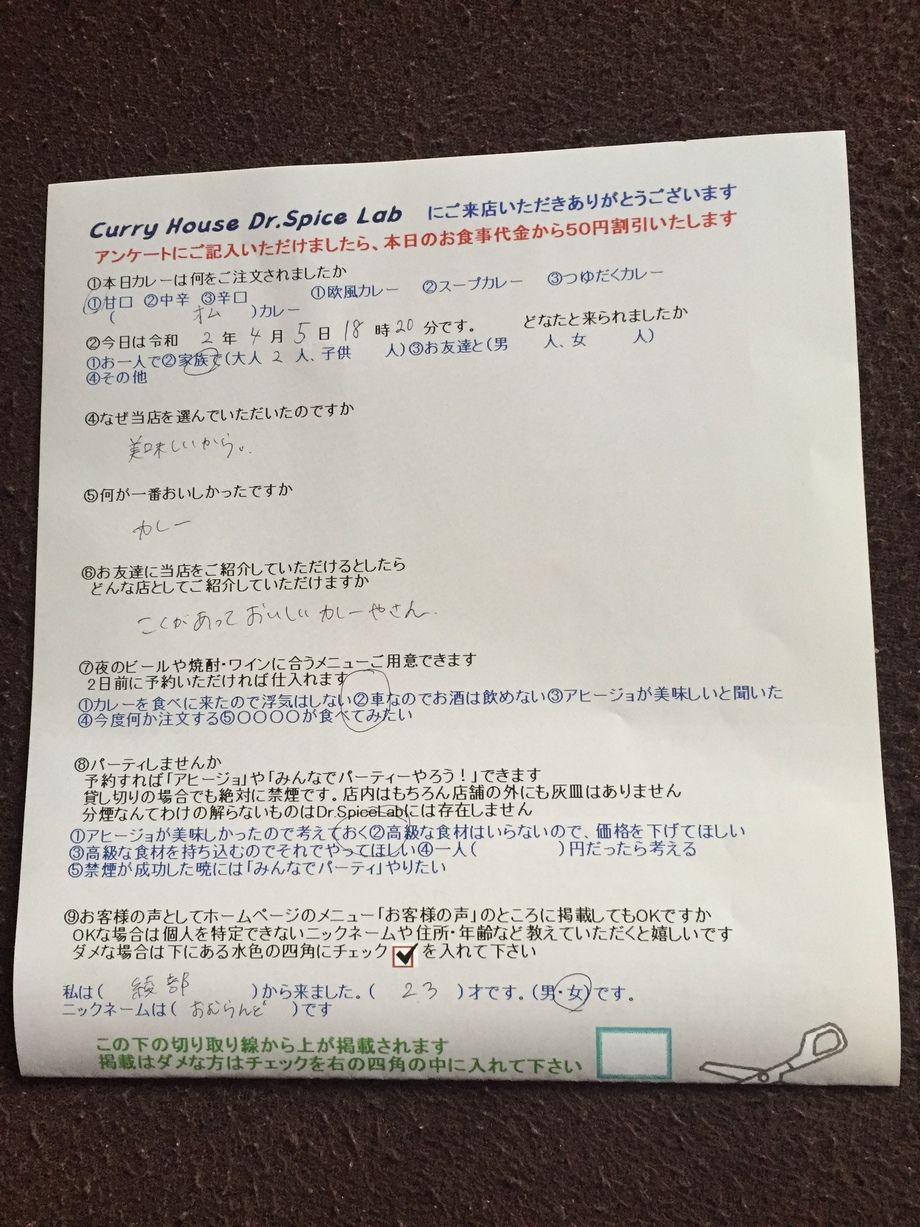 Curry House Dr.Spice Lab にご来店いただきありがとうございます
アンケートにご記入いただけましたら、本日のお食事代金から50円割引いたします
①本日カレーは何をご注文されましたか
①甘口 ②中辛 ③辛口 ①欧風カレー ②スープカレー ③つゆだくカレー
( )カレー
②今日は令和 2 年 4 月 5 日 18 時 20 分です。 どなたと来られましたか
①お一人で②家族で(大人 2 人、子供 人)③お友達と(男 人、女 人)
④その他
④なぜ当店を選んでいただいたのですか
美味しいから。
⑤何が一番おいしかったですか
カレー
⑥お友達に当店をご紹介していただけるとしたら
どんな店としてご紹介していただけますか
こくがあっておいしいカレーやさん
⑦夜のビールや焼酎・ワインに合うメニューご用意できます
2日前に予約いただければ仕入れます
①カレーを食べに来たので浮気はしない②車なのでお酒は飲めない③アヒージョが美味しいと聞いた
④今度何か注文する⑤〇〇〇〇が食べてみたい
⑧パーティしませんか
予約すれば「アヒージョ」や「みんなでパーティーやろう!」できます
貸し切りの場合でも絶対に禁煙です。店内はもちろん店舗の外にも灰皿はありません
分煙なんてわけの解らないものはDr.SpiceLabには存在しません
①アヒージョが美味しかったので考えておく②高級な食材はいらないので、価格を下げてほしい
③高級な食材を持ち込むのでそれでやってほしい④一人( )円だったら考える
⑤禁煙が成功した暁には「みんなでパーティ」やりたい
⑨お客様の声としてホームページのメニュー「お客様の声」のところに掲載してもOKですか
OKな場合は個人を特定できないニックネームや住所・年齢など教えていただくと嬉しいです
ダメな場合は下にある水色の四角にチェック を入れて下さい
私は( 綾部 )から来ました。( 23 )才です。(男・女)です。
ニックネームは( おむらんど )です
この下の切り取り線から上が掲載されます
掲載はダメな方はチェックを右の四角の中に入れて下さい